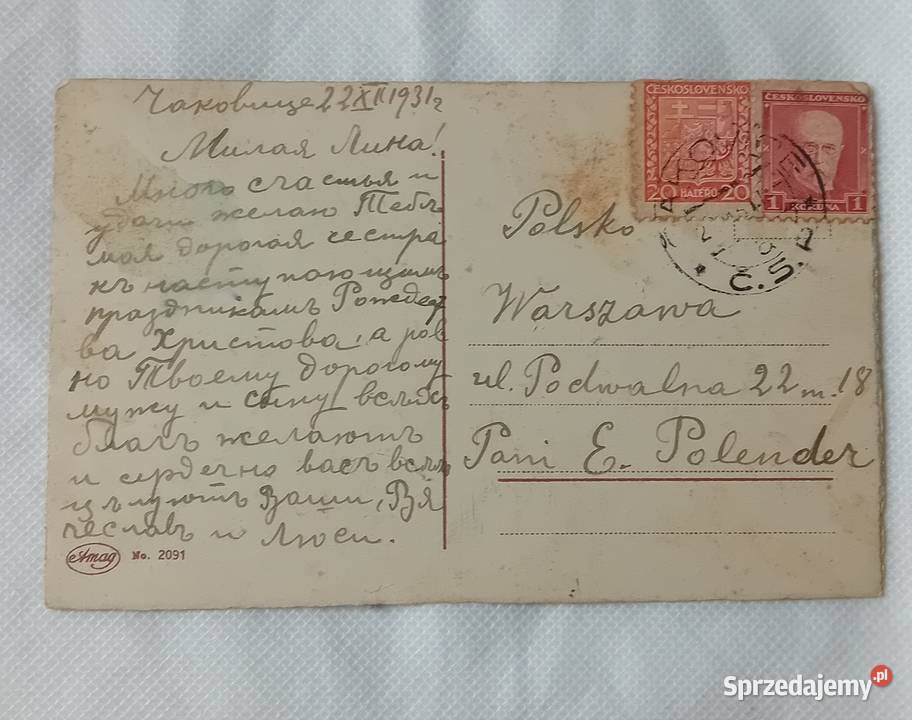 Чаковице 22 XII 1931 г
Милая Лина!
Много счастья и
удачи желаю Тебѣ
моя дорогая сестра
къ наступающимъ
праздникамъ Рождест
ва Христова, а рав
но Твоему дорогому
мужу и сыну всѣхъ
благъ желаютъ
и сердечно васъ всѣхъ
цѣлуютъ Ваши, Вя
чеславъ и Люси.
Amag No. 2091
ČESKOSLOVENSKO
20 HALÉŘŮ 20
ČESKOSLOVENSKO
1 KORUNA 1
Č.S.
Polsko
Warszawa
ul. Podwalna 22 m. 18
Pani E. Polender
Sprzedajemy.pl